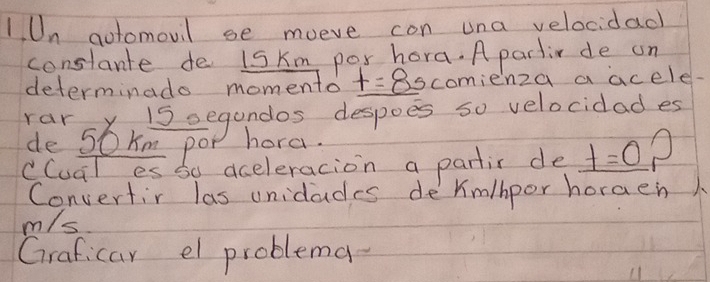 1. Un automovil se mueve con una velocidad
constante de 15 Km por hora. A partir de un
determinado momento t=8s comienza a acele-
rar y 15 segundos despoés so velocidad es
de 50 Km por hora.
¿Cual es su aceleración a partir de t=0?
Convertir las unidades de Km/hpor hora en
m/s.
Graficar el problema